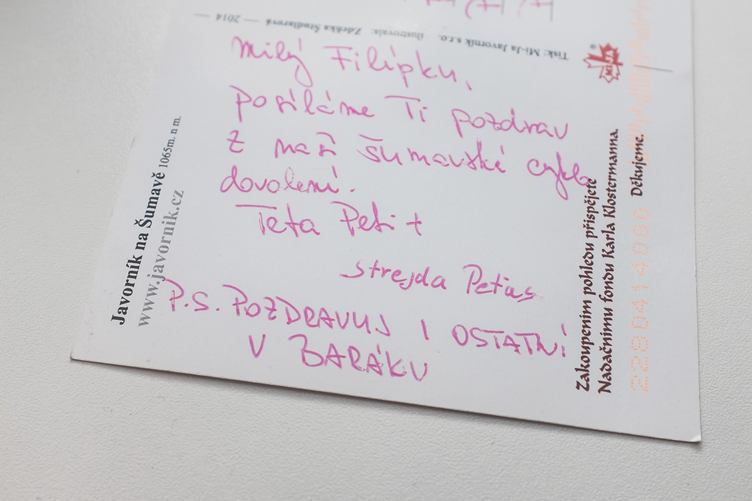 Tisk: Mi-Ja Javorník s.r.o. ilustrovala: Zdeňka Študlarová — 2014 —
Milý Filípku,
posíláme Ti pozdrav
z naší šumavské cyklo
dovolené.
Teta Peti +
strejda Petas
P.S. POZDRAVUJ I OSTATNÍ
V BARÁKU
Javorník na Šumavě 1065m. n m.
www.javornik.cz
Zakoupením pohledu přispějete
Nadačnímu fondu Karla Klostermanna.
Děkujeme.